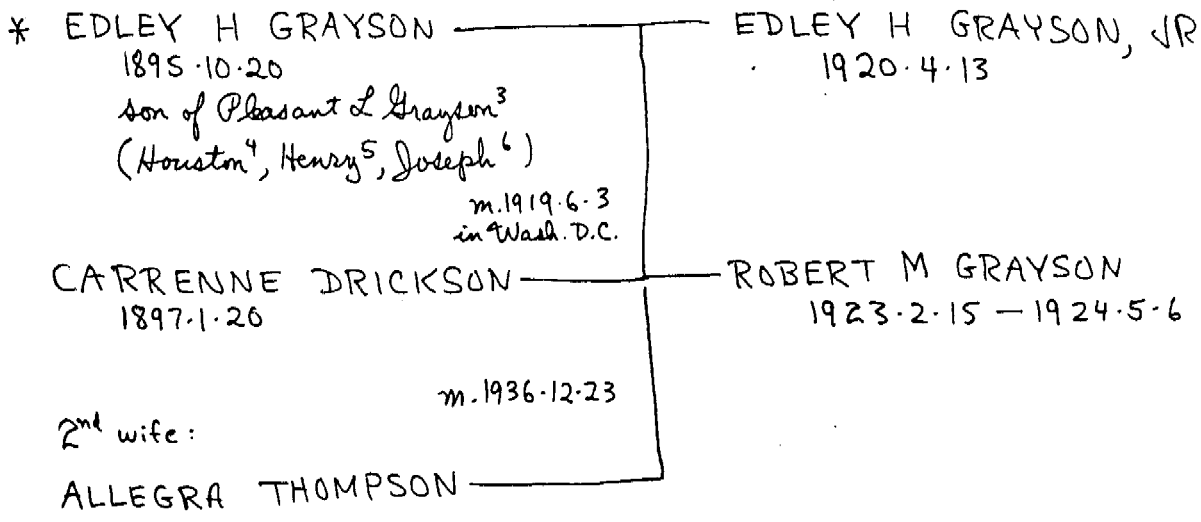 * EDLEY H GRAYSON
1895·10·20
son of Pleasant L Grayson³
(Houston⁴, Henry⁵, Joseph⁶)
m.1919·6·3
in Wash. D.C.
CARRENNE DRICKSON
1897·1·20
m.1936·12·23
2nd wife:
ALLEGRA THOMPSON
EDLEY H GRAYSON, JR
1920·4·13
ROBERT M GRAYSON
1923·2·15 — 1924·5·6